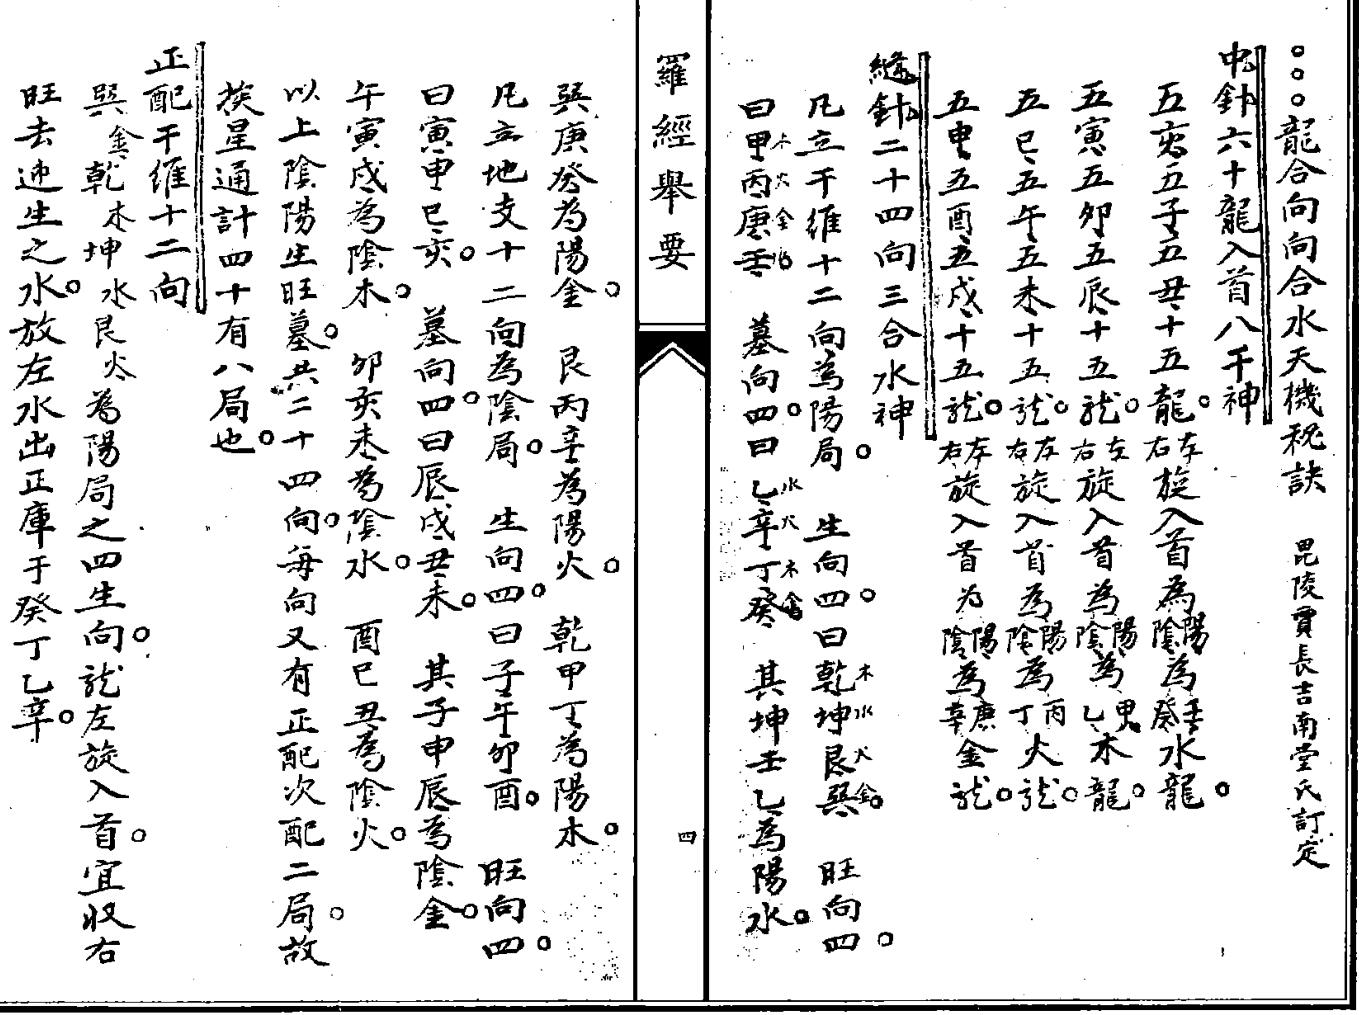 龍合向向合水天機秘訣　毘陵賈長吉南堂氏訂定
中針六十龍入首八千神
五亥五子五丑十五龍。左右旋入首為陽陰為壬癸水龍。
五寅五卯五辰十五龍。左右旋入首為陽陰為甲乙木龍。
五巳五午五未十五龍。左右旋入首為陽陰為丙丁火龍。
五申五酉五戌十五龍。左右旋入首为陽陰為庚辛金龍。
縫針二十四向三合水神
凡立干維十二向為陽局。生向四。曰乾木坤水艮火巽金。旺向四。
曰甲木丙火庚金壬水　墓向四。曰乙水辛火丁木癸金　其坤壬乙為陽水。
羅經舉要
四
巽庚癸為陽金。艮丙辛為陽火。乾甲丁為陽木。
凡立地支十二向為陰局。生向四。曰子午卯酉。旺向四。
曰寅申巳亥。墓向四。曰辰戌丑未。其子申辰為陰金。
午寅戌為陰木。卯亥未為陰水。酉巳丑為陰火。
以上陰陽生旺墓。共二十四向。每向又有正配次配二局。故
挨星通計四十有八局也。
正配干維十二向
巽金乾木坤水艮火為陽局之四生向。龍左旋入首。宜收右
旺去迎生之水。放左水出正庫于癸丁乙辛。